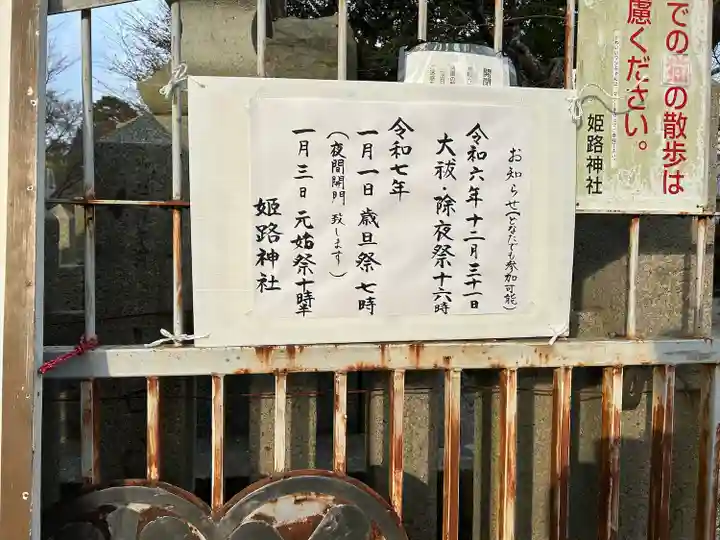 お知らせ(どなたでも参加可能)
令和六年十二月三十一日
大祓・除夜祭十六時
令和七年
一月一日 歳旦祭 七時
(夜間開門 致します)
一月三日 元始祭十時半
姫路神社
での猫の散歩は
慮ください。
姫路神社